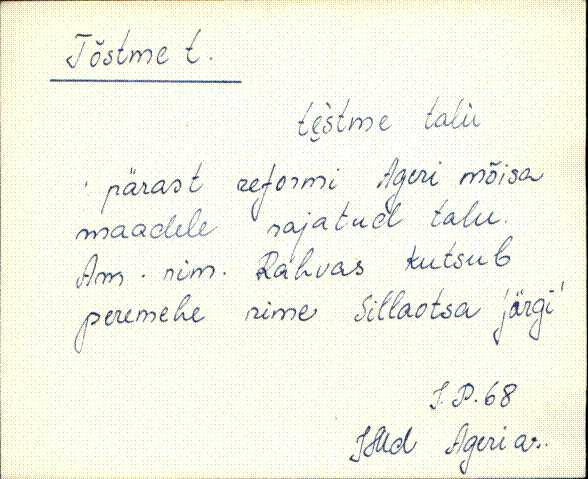 Tõstme t.
te̮stme talu
pärast reformi Ageri mõisa
maadele rajatud talu.
Am. nim. Rahvas kutsub
peremehe nime Sillaotsa järgi
I.P. 68
Ageri as.